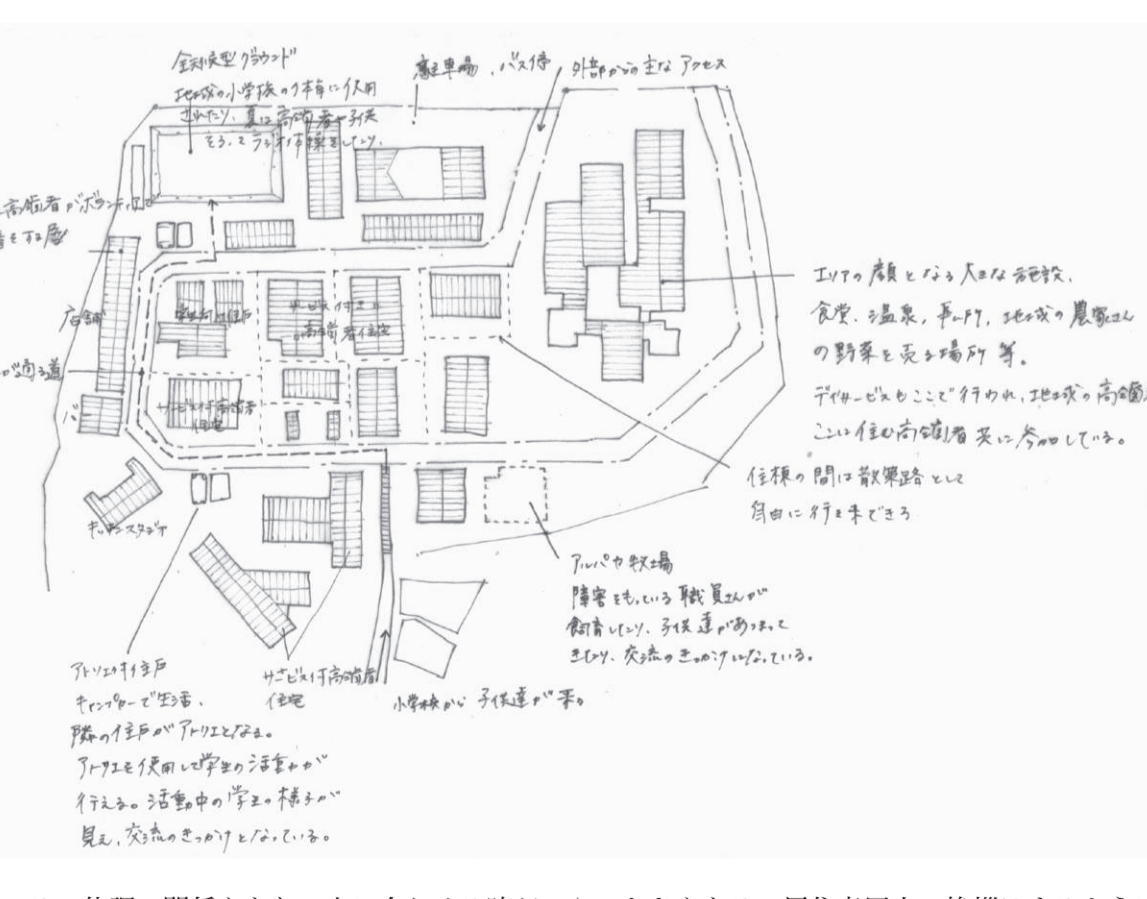 全天候型グラウンド
地域の小学校の体育に使用
されたり、夏は高齢者や子供
そろってラジオ体操をしたり、
駐車場、バス停
外部からの主なアクセス
高齢者がボランティアで
をする
店舗
が通る道
学生向け住戸
サービス付き
高齢者住宅
サービス付高齢者
住宅
エリアの顔となる大きな施設、
食堂、温泉、事ム所、地域の農家さん
の野菜を売る場所 等。
デイサービスもここで行われ、地域の高齢
ここに住む高齢者 共に参加している。
住棟の間は散策路として
自由に行き来できる
キッチンスタジオ
アルパカ牧場
障害をもっている職員さんが
飼育したり、子供達があつまって
きたり、交流のきっかけになっている。
アトリエ付き住戸
キャンパーで生活、
隣の住戸がアトリエとなる。
アトリエを使用して学生の活動が
行える。活動中の学生の様子が
見え、交流のきっかけとなっている。
サービス付高齢者
住宅
小学校から子供達が来る